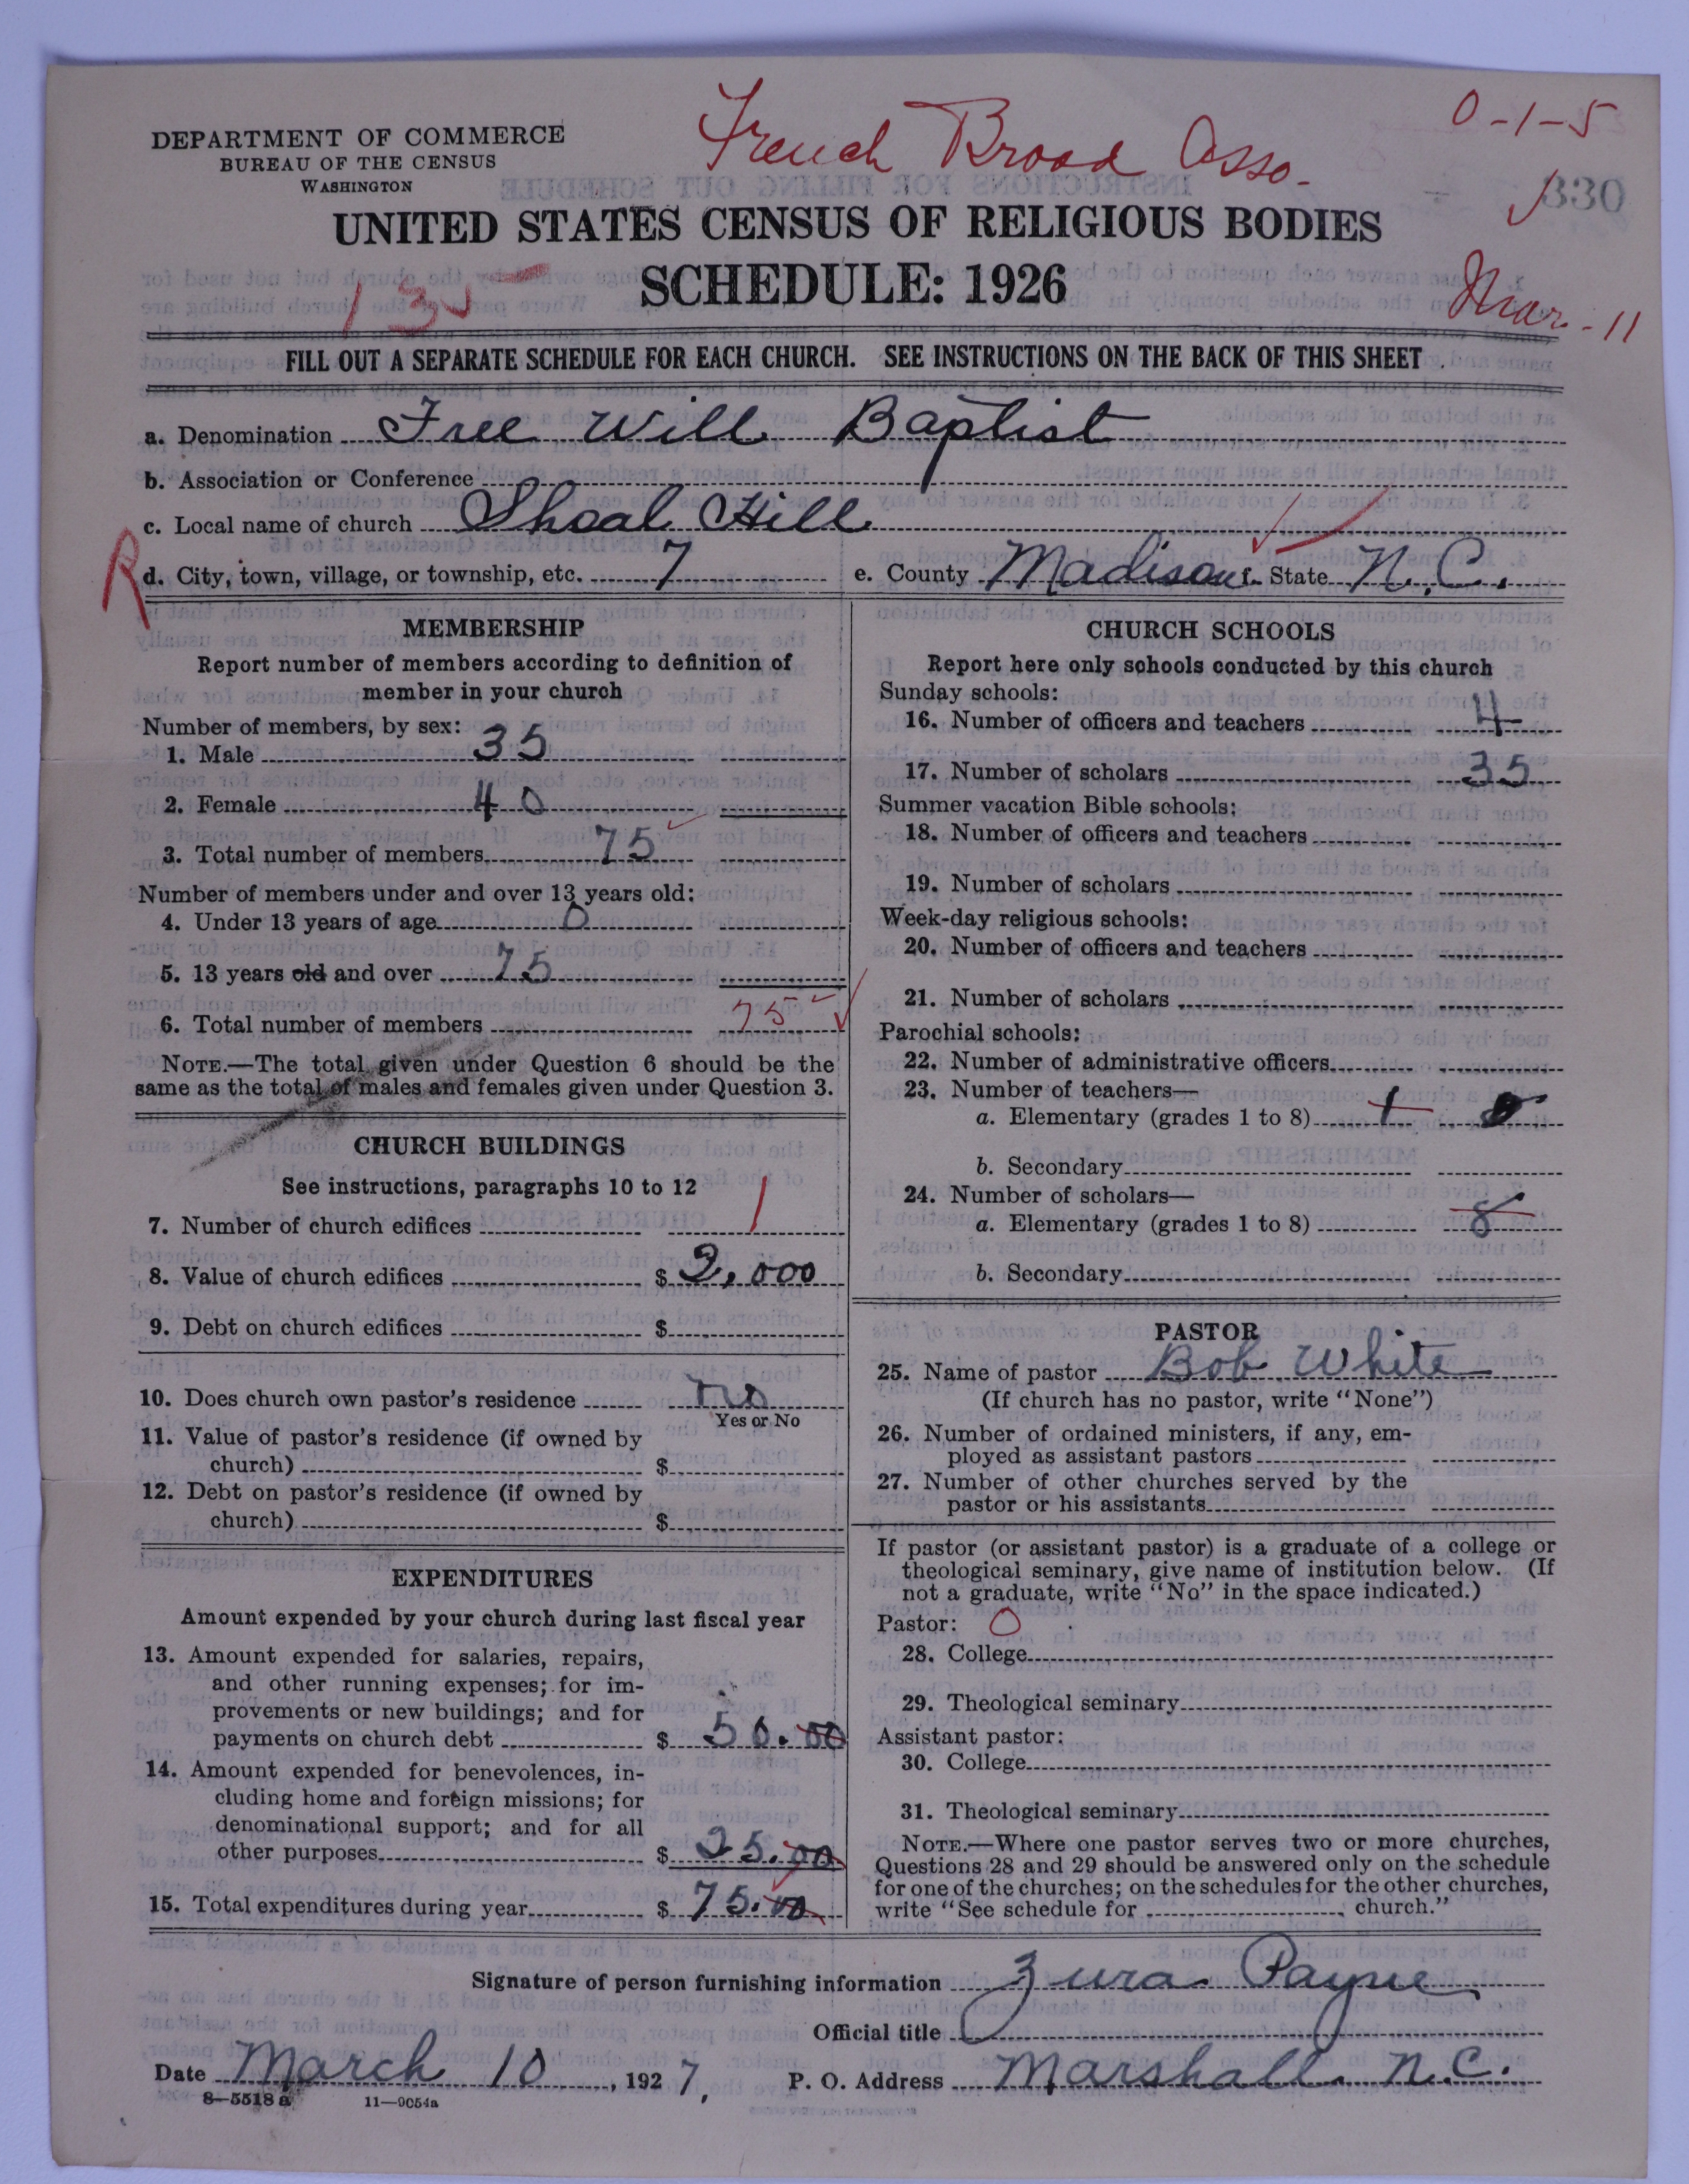 French Broad Asso.
0-1-5
DEPARTMENT OF COMMERCE
BUREAU OF THE CENSUS
WASHINGTON
330
UNITED STATES CENSUS OF RELIGIOUS BODIES
SCHEDULE: 1926
135
Mar. - 11
FILL OUT A SEPARATE SCHEDULE FOR EACH CHURCH. SEE INSTRUCTIONS ON THE BACK OF THIS SHEET
a. Denomination Free Will Baptist
b. Association or Conference
c. Local name of church Shoal Hill
R d. City, town, village, or township, etc. 7 e. County Madison f. State N.C.
MEMBERSHIP
Report number of members according to definition of
member in your church
Number of members, by sex:
1. Male 35
2. Female 40
3. Total number of members 75
Number of members under and over 13 years old:
4. Under 13 years of age 0
5. 13 years old and over 75
6. Total number of members 75
NOTE.—The total given under Question 6 should be the
same as the total of males and females given under Question 3.
CHURCH BUILDINGS
See instructions, paragraphs 10 to 12
7. Number of church edifices 1
8. Value of church edifices $ 2,000
9. Debt on church edifices $
10. Does church own pastor's residence no
Yes or No
11. Value of pastor's residence (if owned by
church) $
12. Debt on pastor's residence (if owned by
church) $
EXPENDITURES
Amount expended by your church during last fiscal year
13. Amount expended for salaries, repairs,
and other running expenses; for im-
provements or new buildings; and for
payments on church debt $ 50.00
14. Amount expended for benevolences, in-
cluding home and foreign missions; for
denominational support; and for all
other purposes $ 25.00
15. Total expenditures during year $ 75.00
CHURCH SCHOOLS
Report here only schools conducted by this church
Sunday schools:
16. Number of officers and teachers 4
17. Number of scholars 35
Summer vacation Bible schools:
18. Number of officers and teachers
19. Number of scholars
Week-day religious schools:
20. Number of officers and teachers
21. Number of scholars
Parochial schools:
22. Number of administrative officers
23. Number of teachers—
a. Elementary (grades 1 to 8) 1
b. Secondary
24. Number of scholars—
a. Elementary (grades 1 to 8) 8
b. Secondary
PASTOR
25. Name of pastor Bob White
(If church has no pastor, write "None")
26. Number of ordained ministers, if any, em-
ployed as assistant pastors
27. Number of other churches served by the
pastor or his assistants
If pastor (or assistant pastor) is a graduate of a college or
theological seminary, give name of institution below. (If
not a graduate, write "No" in the space indicated.)
Pastor: 0
28. College
29. Theological seminary
Assistant pastor:
30. College
31. Theological seminary
NOTE.—Where one pastor serves two or more churches,
Questions 28 and 29 should be answered only on the schedule
for one of the churches; on the schedules for the other churches,
write "See schedule for church."
Signature of person furnishing information Zura Payne
Official title
Date March 10, 1927, P. O. Address Marshall N.C.
8—5518 a 11—9054a